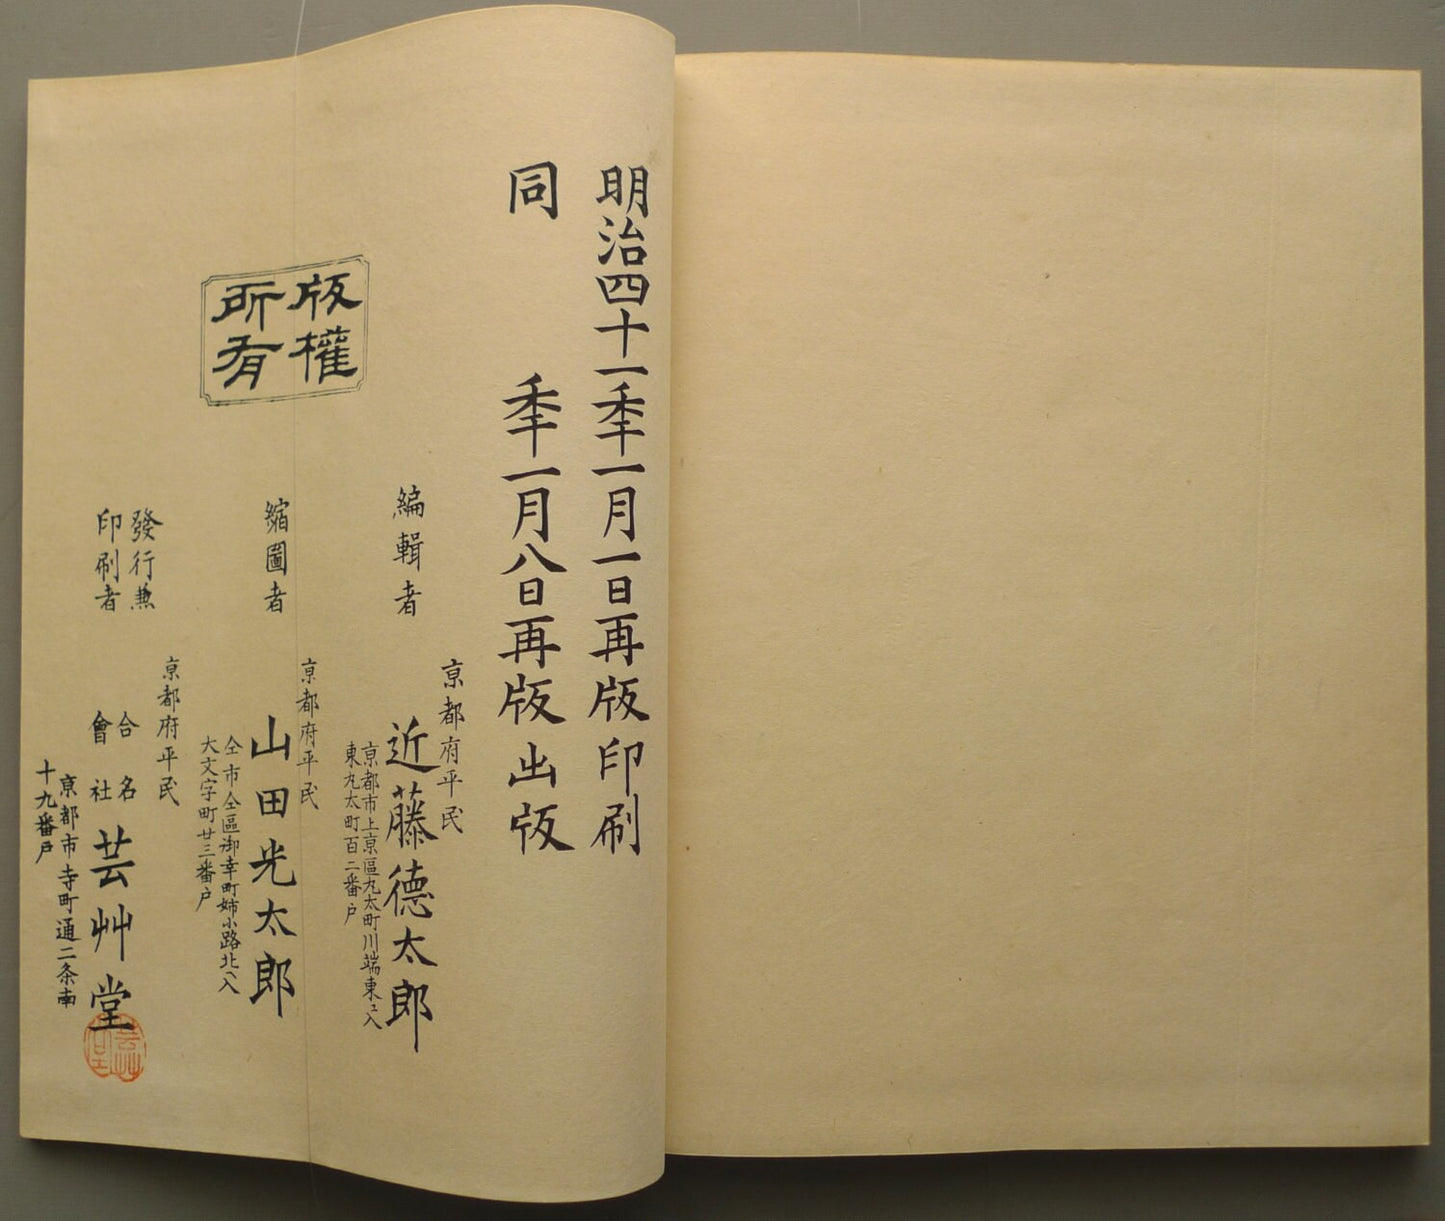 明治四十一秊一月一日再版印刷
同　秊一月八日再版出版
版權
所有
編輯者
京都府平民
近藤德太郎
京都市上京區丸太町川端東エ入
東丸太町百二番戶
縮圖者
京都府平民
山田光太郎
仝市仝區御幸町姉小路北入
大文字町廿三番戶
發行兼
印刷者
京都府平民
合名
會社
芸艸堂
京都市寺町通二条南
十九番戶
芸艸堂